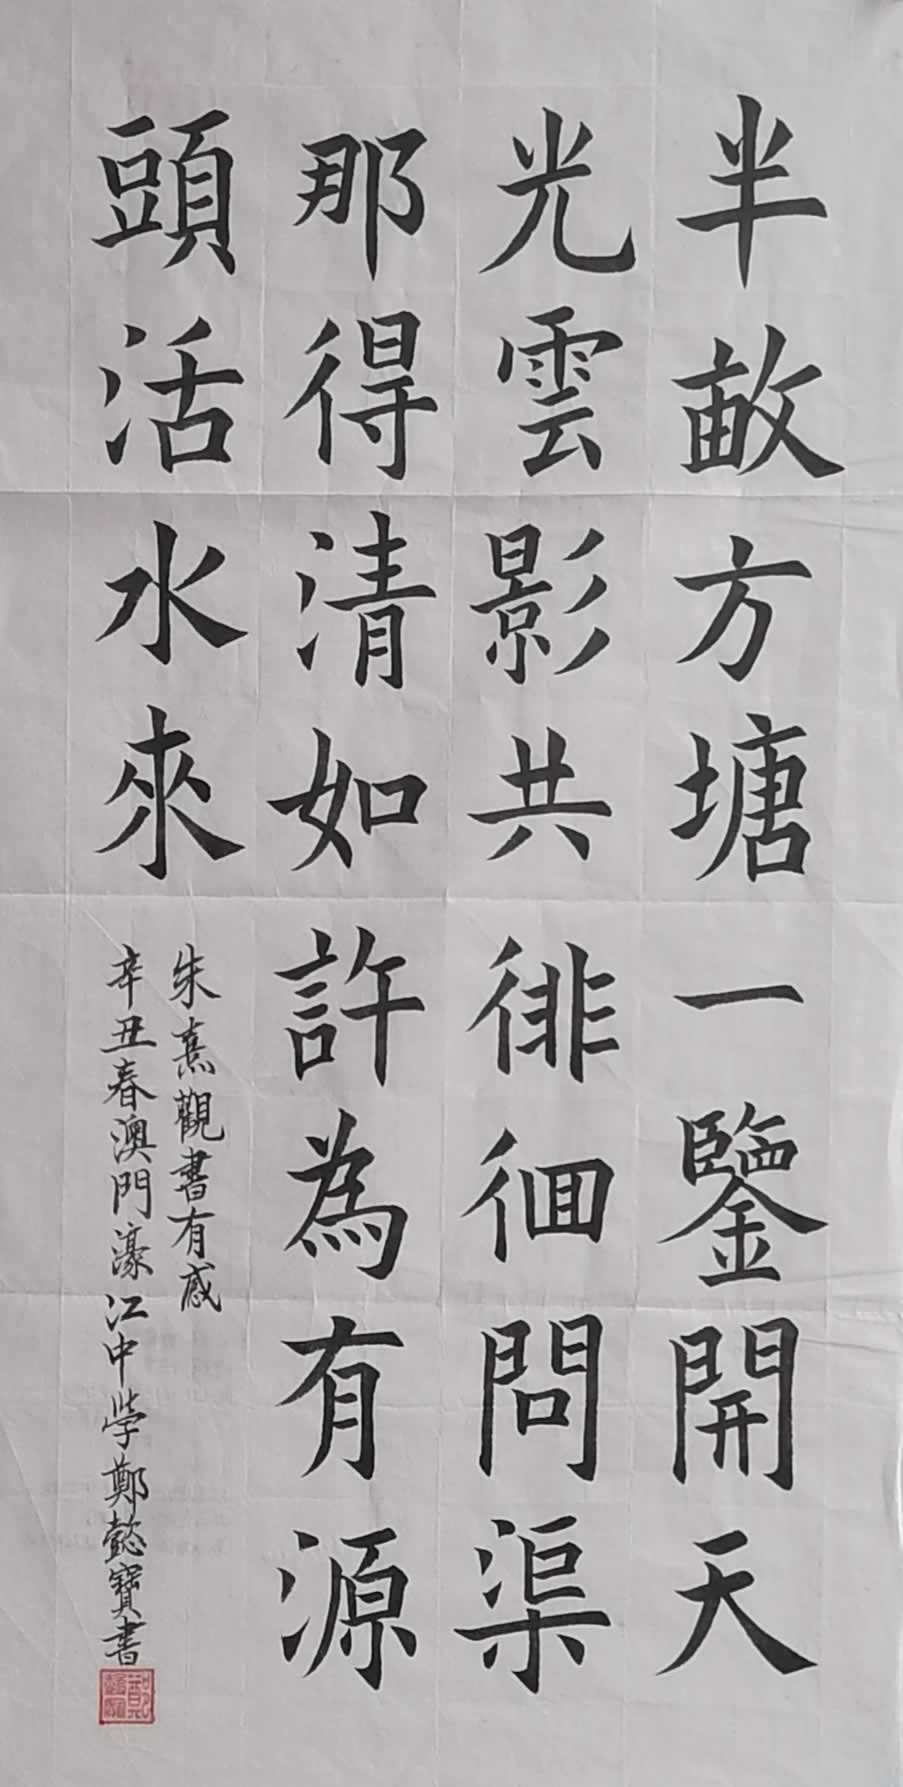 半畝方塘一鑒開天
光雲影共徘徊問渠
那得清如許為有源
頭活水來
朱熹觀書有感
辛丑春澳門濠江中學鄭懿寶書